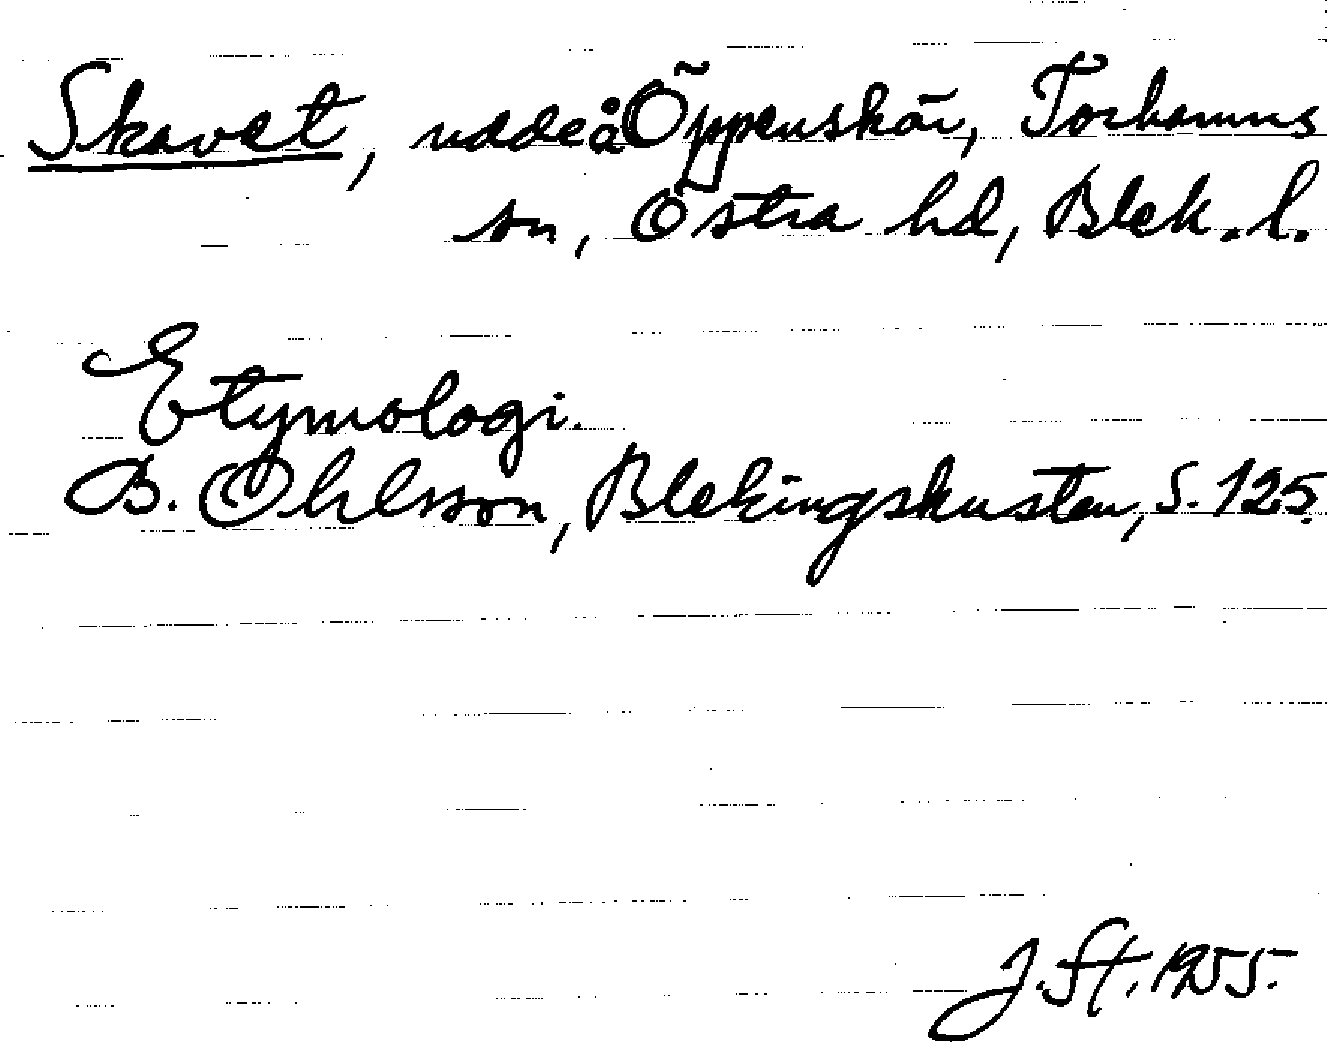 Skavet, udde å Öppenskär, Torhamns
sn, Östra hd, Blek. l.
Etymologi.
B. Ohlsson, Blekingskusten, S. 125.
J. St. 1955.